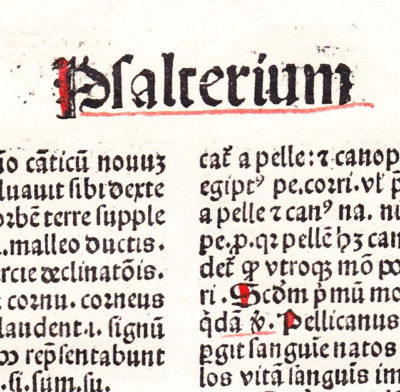 Psalterium
ño cãticũ nouuꝫ
luauit sibi dexte
orbẽ terre supple
.malleo ductis.
rcie declinatõis.
cornu. corneus
laudent .i. signũ
rep̃sentabunt
.si. sum. su.
cat̃ a pelle: ⁊ canop
egiptꝰ pe.corri. vl̃
a pelle ⁊ canꝰ na.
pe.ꝓ. qꝛ pellẽ hꝫ can
det̃ ꝙ vtroqꝫ mõ po
ri. Scd̃m p̃mũ mo
q̃dã Pellicanus
ꝑgit sanguiẽ natos
los vitã sanguis im